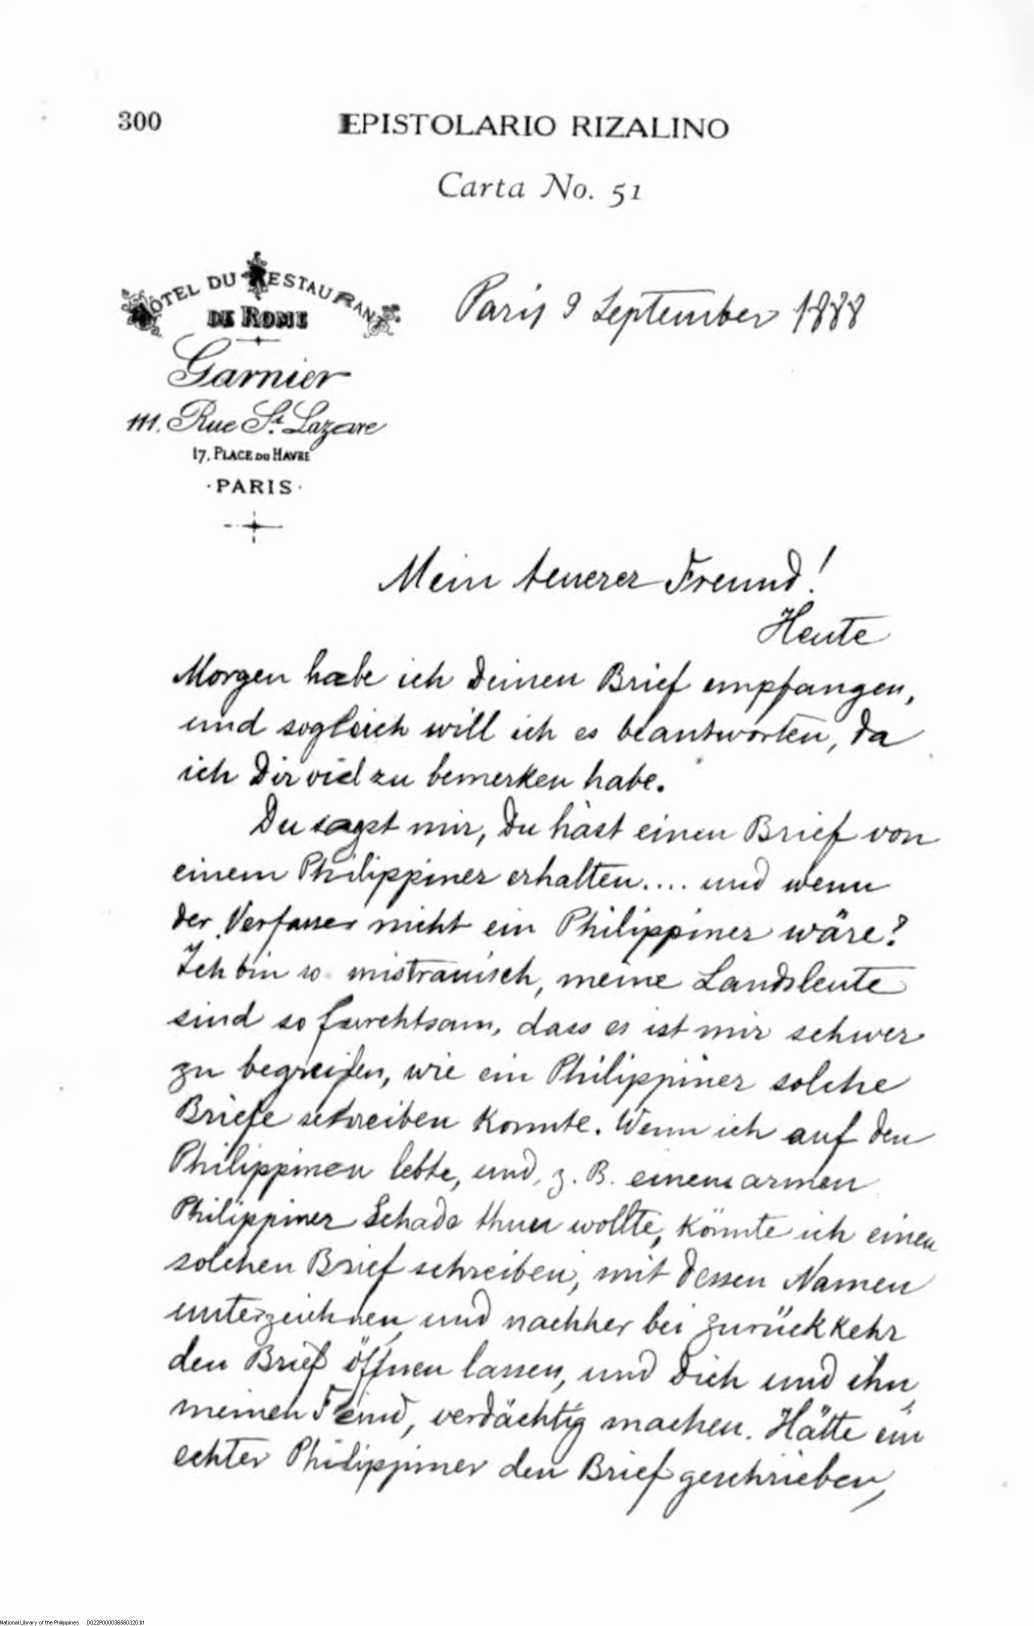 300
EPISTOLARIO RIZALINO
Carta No. 51
HÔTEL DU RESTAURANT
DE ROME
Garnier
111. Rue St. Lazare
17, PLACE DU HAVRE
·PARIS·
Paris 9 September 1888
Mein teuerer Freund!
Heute
Morgen habe ich Deinen Brief empfangen,
und sogleich will ich es beantworten, da
ich Dir viel zu bemerken habe.
Du sagst mir, Du hast einen Brief von
einem Philippiner erhalten.... und wenn
der Verfasser nicht ein Philippiner wäre?
Ich bin so mistrauisch, meine Landsleute
sind so furchtsam, dass es ist mir schwer
zu begreifen, wie ein Philippiner solche
Briefe schreiben konnte. Wenn ich auf den
Philippinen lebte, und, z. B. einem armen
Philippiner Schade thun wollte, könnte ich einen
solchen Brief schreiben, mit dessen Namen
unterzeichnen, und nachher bei Zurückkehr
den Brief öffnen lassen, und Dich und ihn,
meinen Feind, verdächtig machen. Hätte ein
echter Philippiner den Brief geschrieben,
National Library of the Philippines